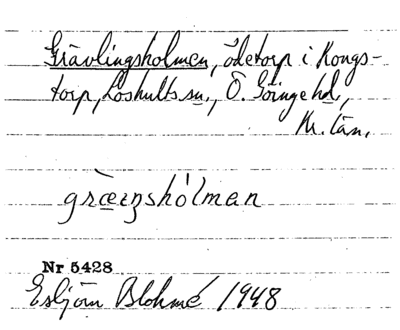 Grävlingsholmen, ödetorp i Kongs-
torp, Loshults sn., Ö. Göinge hd,
Kr. län.
græiŋshólman
Nr 5428
Esbjörn Blohmé 1948